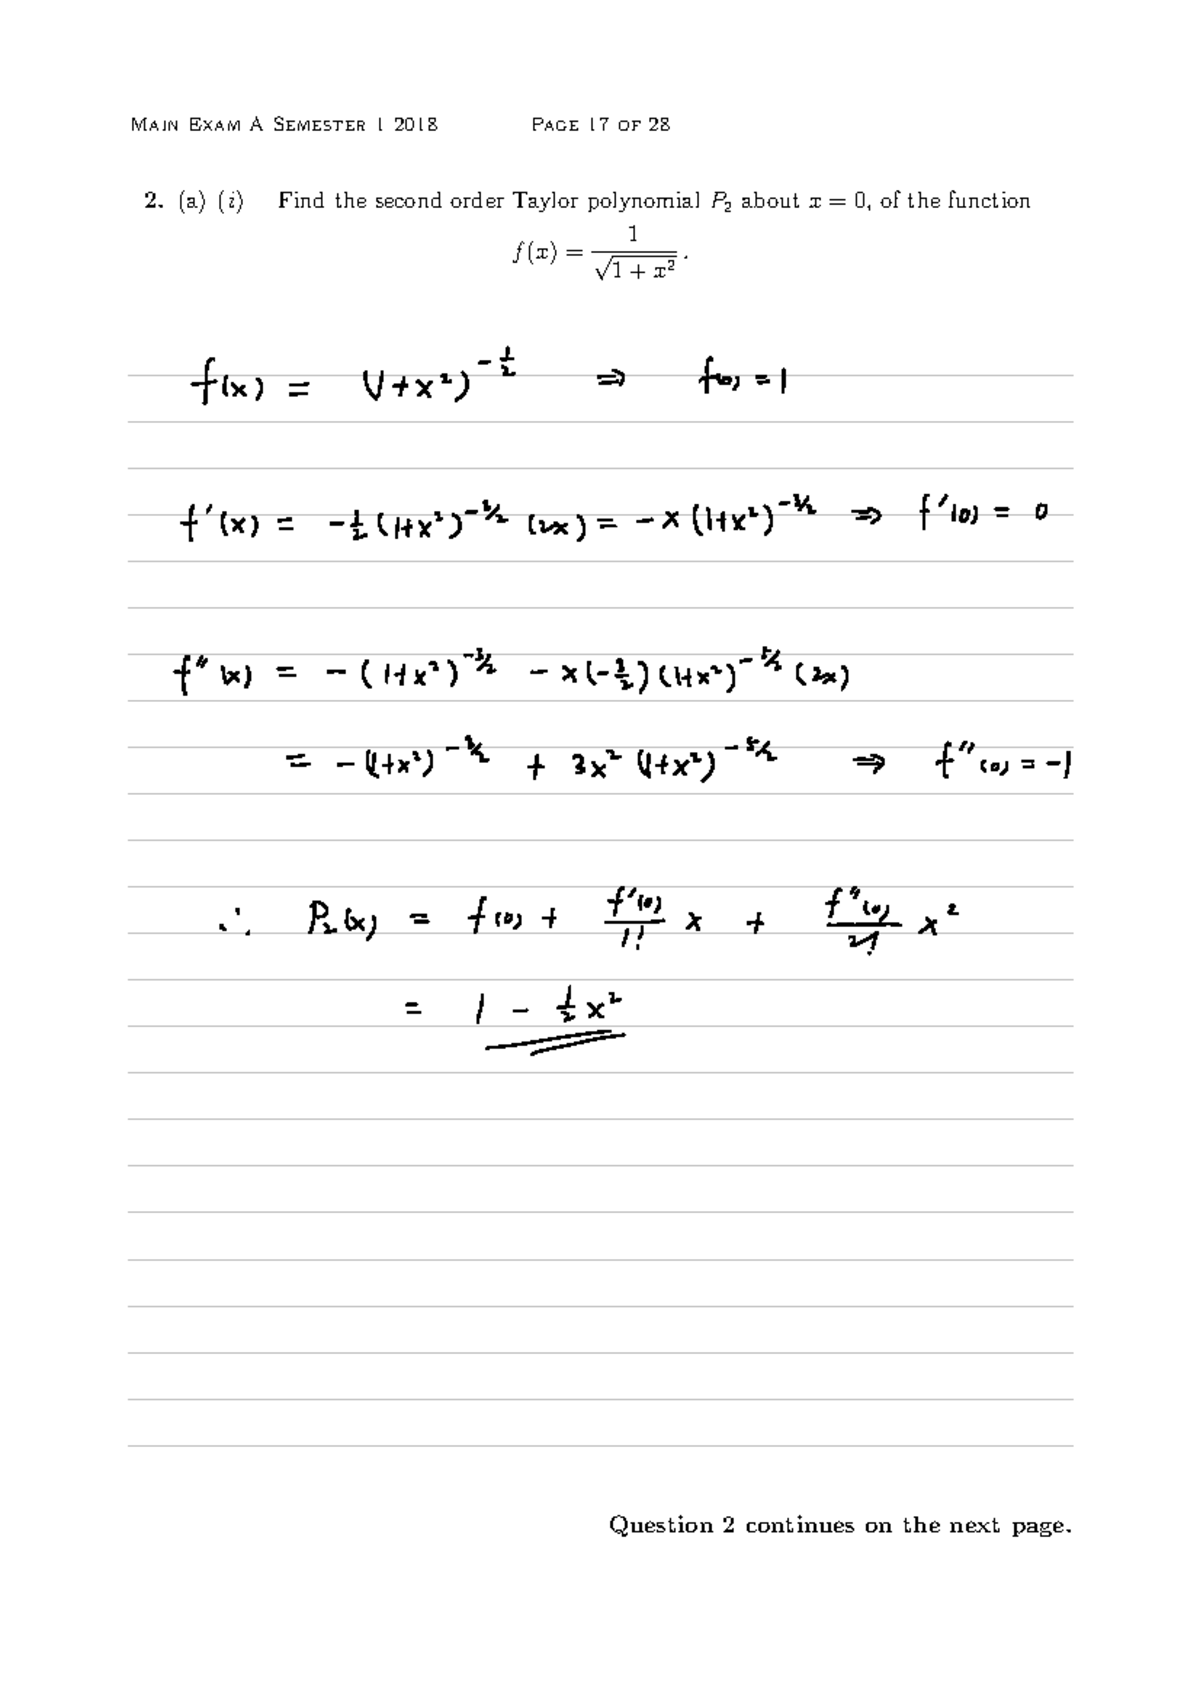 Main Exam A Semester 1 2018 Page 17 of 28
2. (a) (i) Find the second order Taylor polynomial P₂ about x = 0, of the function
f(x) = 1/√(1 + x²) .
f(x) = (1+x²)^(-1/2) ⇒ f(0) = 1
f'(x) = -1/2 (1+x²)^(-3/2) (2x) = -x (1+x²)^(-3/2) ⇒ f'(0) = 0
f''(x) = -(1+x²)^(-3/2) - x(-3/2)(1+x²)^(-5/2) (2x)
= -(1+x²)^(-3/2) + 3x² (1+x²)^(-5/2) ⇒ f''(0) = -1
∴ P₂(x) = f(0) + f'(0)/1! x + f''(0)/2! x²
= 1 - 1/2 x²
Question 2 continues on the next page.